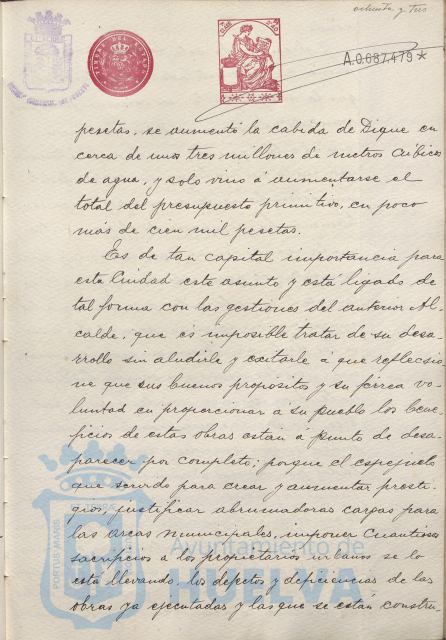 ochenta y tres
A.0.687.479*
pesetas, se aumentó la cabida de Dique en
cerca de unos tres millones de metros cúbicos
de agua, y solo vino á aumentarse el
total del presupuesto primitivo, en poco
más de cien mil pesetas.
Es de tan capital importancia para
esta Ciudad este asunto y está ligado de
tal forma con las gestiones del anterior Al-
calde, que es imposible tratar de su desa-
rrollo sin aludirle y excitarle á que reflecsio-
ne que sus buenos propósitos y su férrea vo-
luntad en proporcionar á su pueblo los bene-
ficios de estas obras están á punto de desa-
parecer por completo; porque el espejuelo
que servido para crear y aumentar presti-
gios, justificar abrumadoras cargas para
las arcas municipales, imponer cuantiosos
sacrificios a los propietarios urbanos se lo
está llevando, los defectos y deficiencias de las
obras ya ejecutadas y las que se están constru-
PORTUS MARIS
Ayuntamiento de
HUELVA